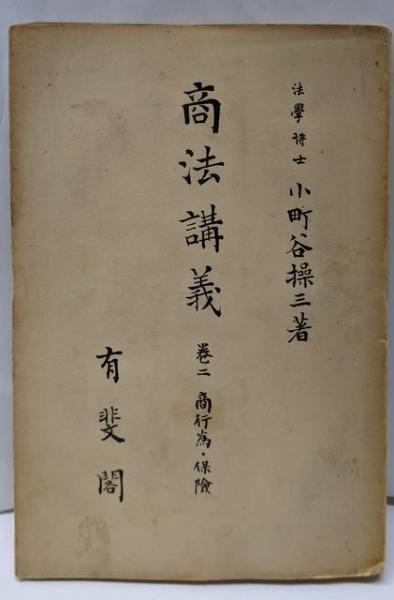 法學博士 小町谷操三著
商法講義
卷二 商行為・保險
有斐閣